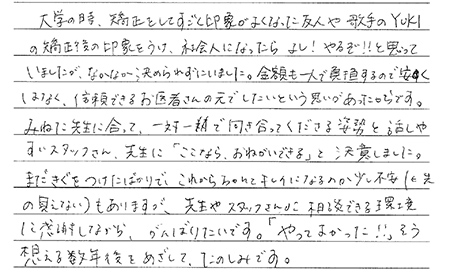 大学の時、矯正をしてすごく印象がよくなった友人や歌手のYUKI
の矯正後の印象をうけ、社会人になったら よし！やるぞ!!と思って
いましたが、なかなか決められずにいました。金額も一人で負担するので安く
はなく、信頼できるお医者さんの元でしたいという思いがあったからです。
みねた先生に会って、一対一精で向き合ってくださる姿勢と話しや
すいスタッフさん、先生に「ここなら、おねがいできる」と決意しました。
まだきぐをつけたばかりで、これから
キレイになるのか少し不安（先
の見えない）もありますが、先生やスタッフさんに相談できる環境
に感謝しながら、がんばりたいです。「やってよかった!!」そう
想える数年後をめざして、たのしみです。